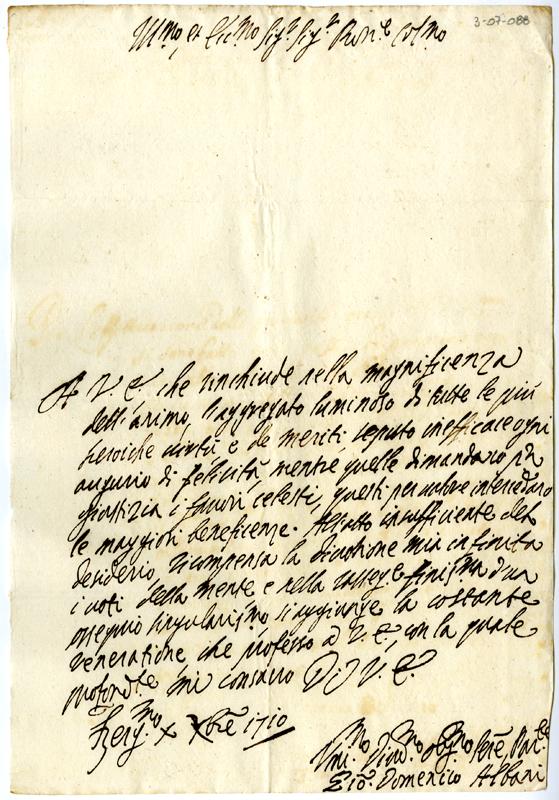 3-07-088
Ill.mo, et Ecc.mo Sig.r Sig.r Pron.e Col.mo
A V. E. che rinchiude nella magnificenza
dell'animo, l'aggregato luminoso di tutte le più
heroiche virtù, e de meriti, reputo inefficace ogni
augurio di felicità, mentre quelle dimandano p
giustizia i favori celesti, questi per intercedano
le maggiori beneficenze. Al fatto insufficiente del
desiderio, ricompensa la divotione mia infinita
i voti della mente, e nella finis.ma d'un
ossequio singularis.mo s'aggiunge la costante
veneratione, che professo a V. E., con la quale
profond.te mi consacro Di V. E.
X Xbre 1710
Um.mo Div.mo Obg.mo
Gio. Domenico Albani